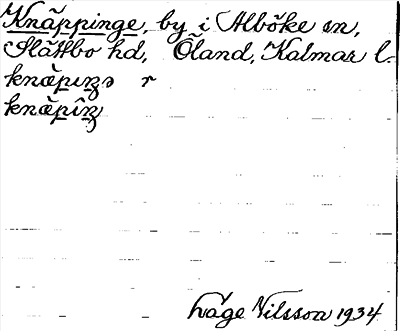 Knäppinge, by i Alböke sn,
Slättbo hd, Öland, Kalmar l.
knäpıŋə r
knäpîŋ
Låge Nilsson 1934